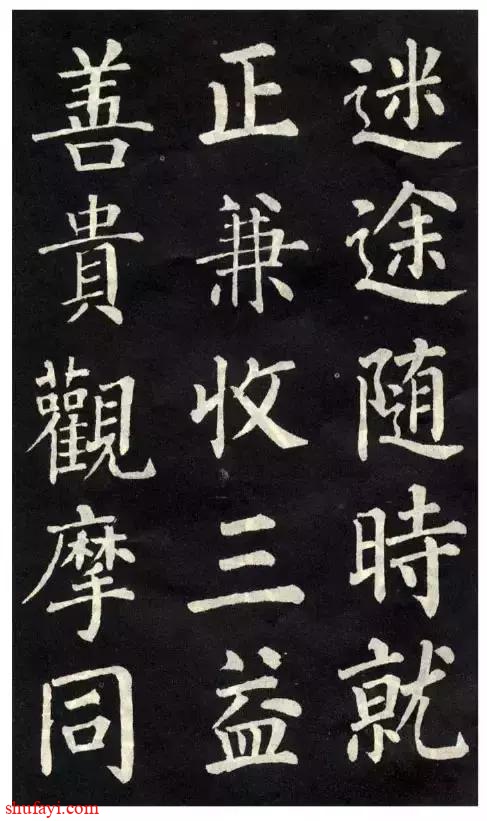 迷途随時就
正兼收三益
善貴觀摩同
shufayi.com